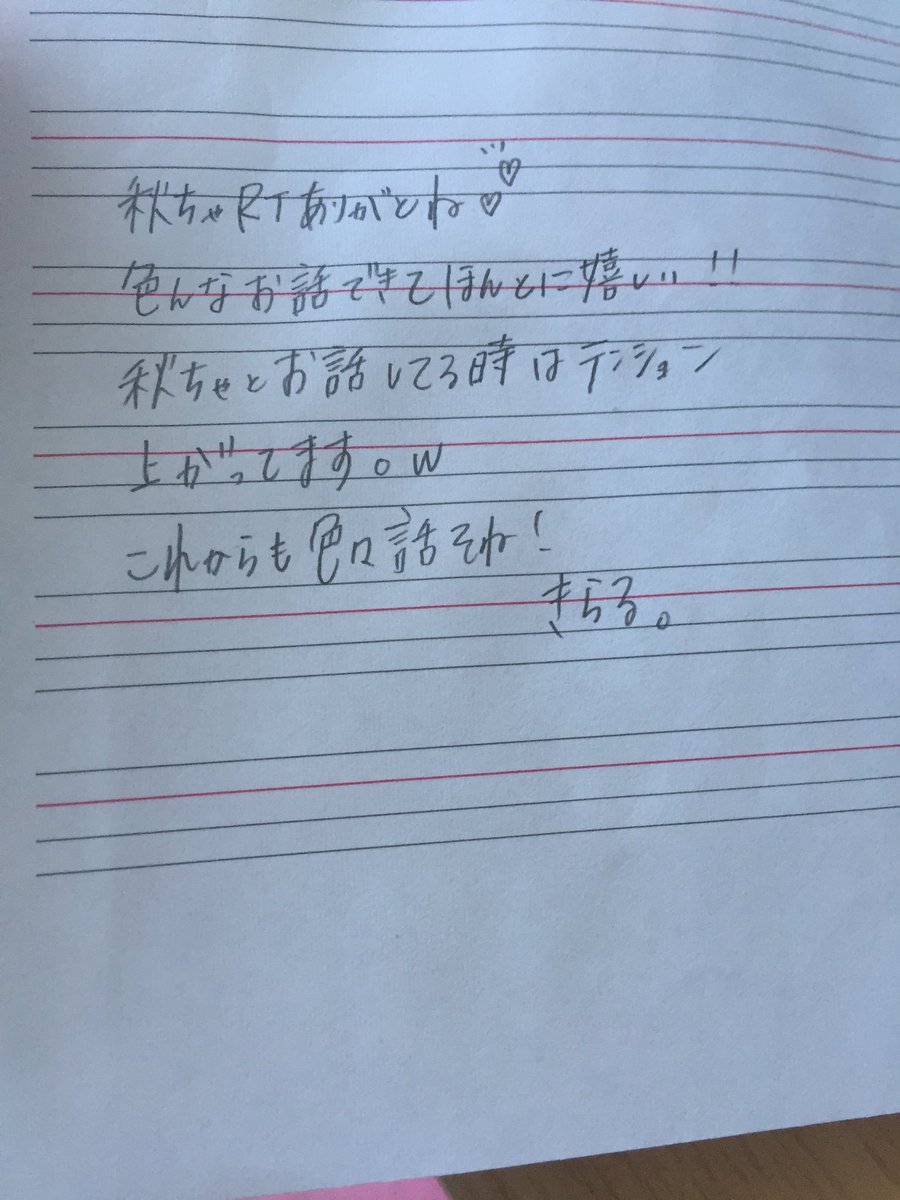 秋ちゃRTありがとね♡♡
色んなお話できてほんとに嬉しい!!
秋ちゃとお話してる時はテンション
上がってます。w
これからも色々話そね!
きらる。